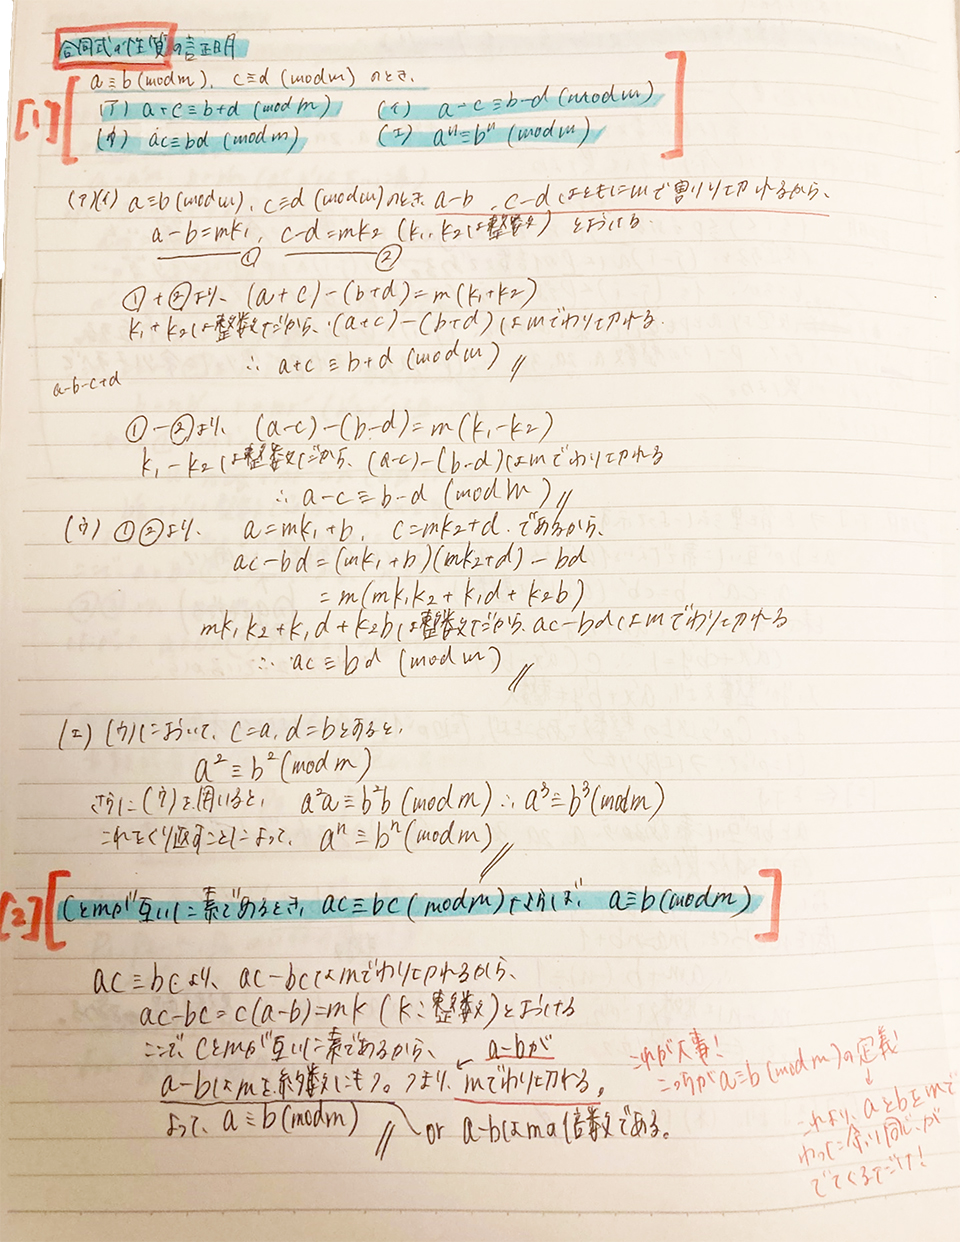 合同式の性質の証明
[1] a≡b(modm)、c≡d(modm)のとき、
(ア) a+c≡b+d (modm) (イ) a-c≡b-d(modm)
(ウ) ac≡bd (modm) (エ) aⁿ≡bⁿ(modm)
(ア)(イ) a≡b(modm)、c≡d(modm)のとき a-b、c-dはともにmで割り切れるから、
a-b=mk₁, c-d=mk₂ (k₁、k₂は整数) とおける
① ②
①+②より、(a+c)-(b+d)=m(k₁+k₂)
k₁+k₂は整数だから、(a+c)-(b+d)はmでわり切れる.
∴ a+c≡b+d (modm)
a-b-c+d
①-②より、(a-c)-(b-d)=m(k₁-k₂)
k₁-k₂は整数だから、(a-c)-(b-d)はmでわり切れる
∴ a-c≡b-d (modm)
(ウ) ①②より、a=mk₁+b, c=mk₂+d.であるから、
ac-bd=(mk₁+b)(mk₂+d)-bd
=m(mk₁k₂+k₁d+k₂b)
mk₁k₂+k₁d+k₂bは整数だから、ac-bdはmでわり切れる
∴ ac≡bd (modm)
(エ) (ウ)において、c=a, d=bとすると、
a²≡b²(modm)
さらに(ウ)を用いると、a²a≡b²b(modm)∴a³≡b³(modm)
これをくり返すことによって、aⁿ≡bⁿ(modm)
[2] Cとmが互いに素であるとき、ac≡bc(modm)ならば、a≡b(modm)
ac≡bcより、ac-bcはmでわり切れるから、
ac-bc=c(a-b)=mk (k:整数)とおける
ここで、Cとmが互いに素であるから、a-bが
a-bはmを約数にもつ。つまり、mでわり切れる。
よって、a≡b(modm) or a-bはmの倍数である。
これが大事!
こっちがa≡b(modm)の定義!
↓
これより、aとbをmで
わった余り同じ、が
でてくるだけ!